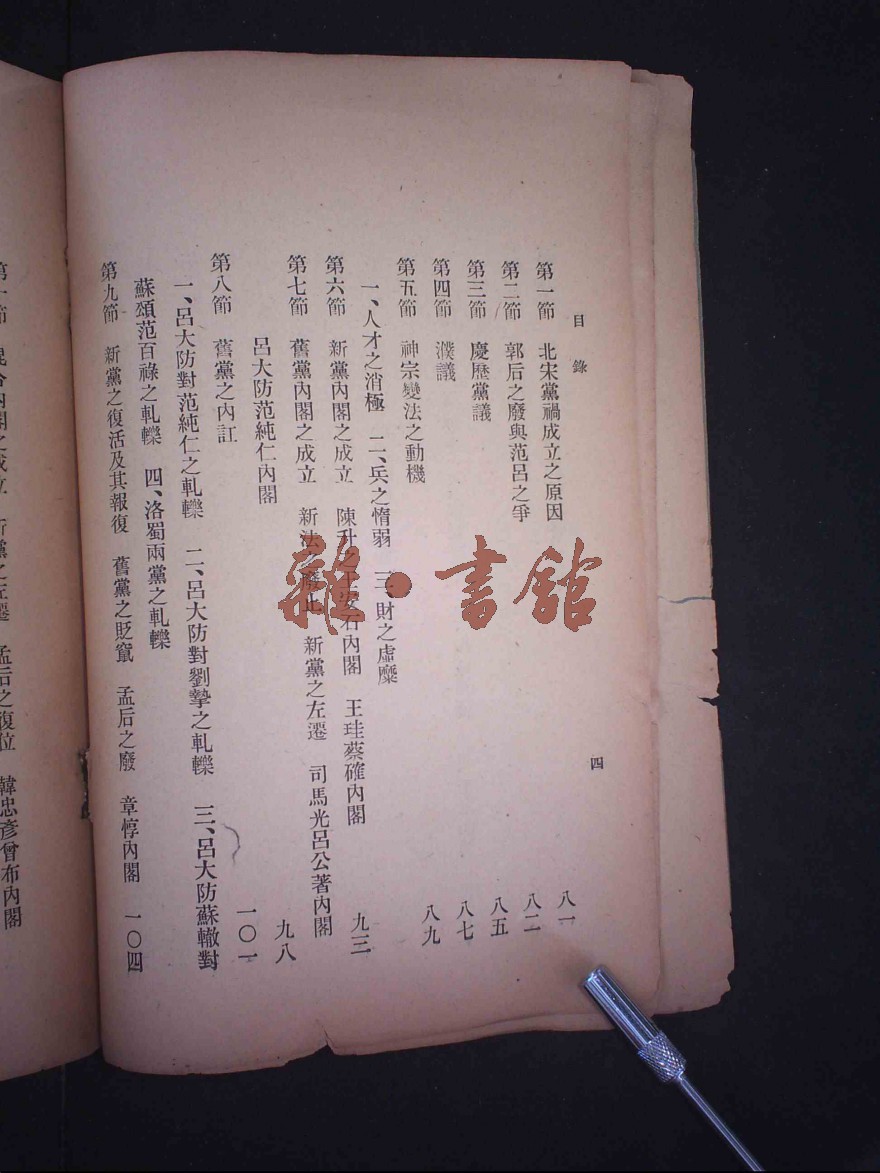 目錄
四
第一節 北宋黨禍成立之原因 八一
第二節 郭后之廢與范呂之爭 八二
第三節 慶歷黨議 八五
第四節 濮議 八七
第五節 神宗變法之動機 八九
一、人才之消極 二、兵之惰弱 三、財之虛糜
第六節 新黨內閣之成立 陳升之王安石內閣 王珪蔡確內閣 九三
第七節 舊黨內閣之成立 新法之廢止 新黨之左遷 司馬光呂公著內閣
呂大防范純仁內閣 九八
第八節 舊黨之內訌 一〇一
一、呂大防對范純仁之軋轢 二、呂大防對劉摯之軋轢 三、呂大防蘇轍對
蘇頌范百祿之軋轢 四、洛蜀兩黨之軋轢
第九節 新黨之復活及其報復 舊黨之貶竄 孟后之廢 章惇內閣 一〇四
內閣之成立 新黨之左遷 孟后之復位 韓忠彥曾布內閣
雜·書館